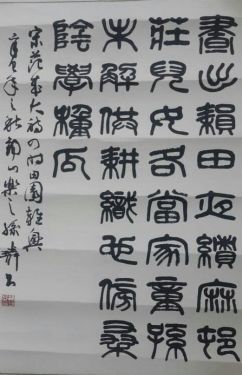 晝出耘田夜績麻邨
莊兒女各當家童孫
未解供耕織也傍桑
陰學種瓜
宋范成大詩四時田園雜興
年之秋南山樂之孫書